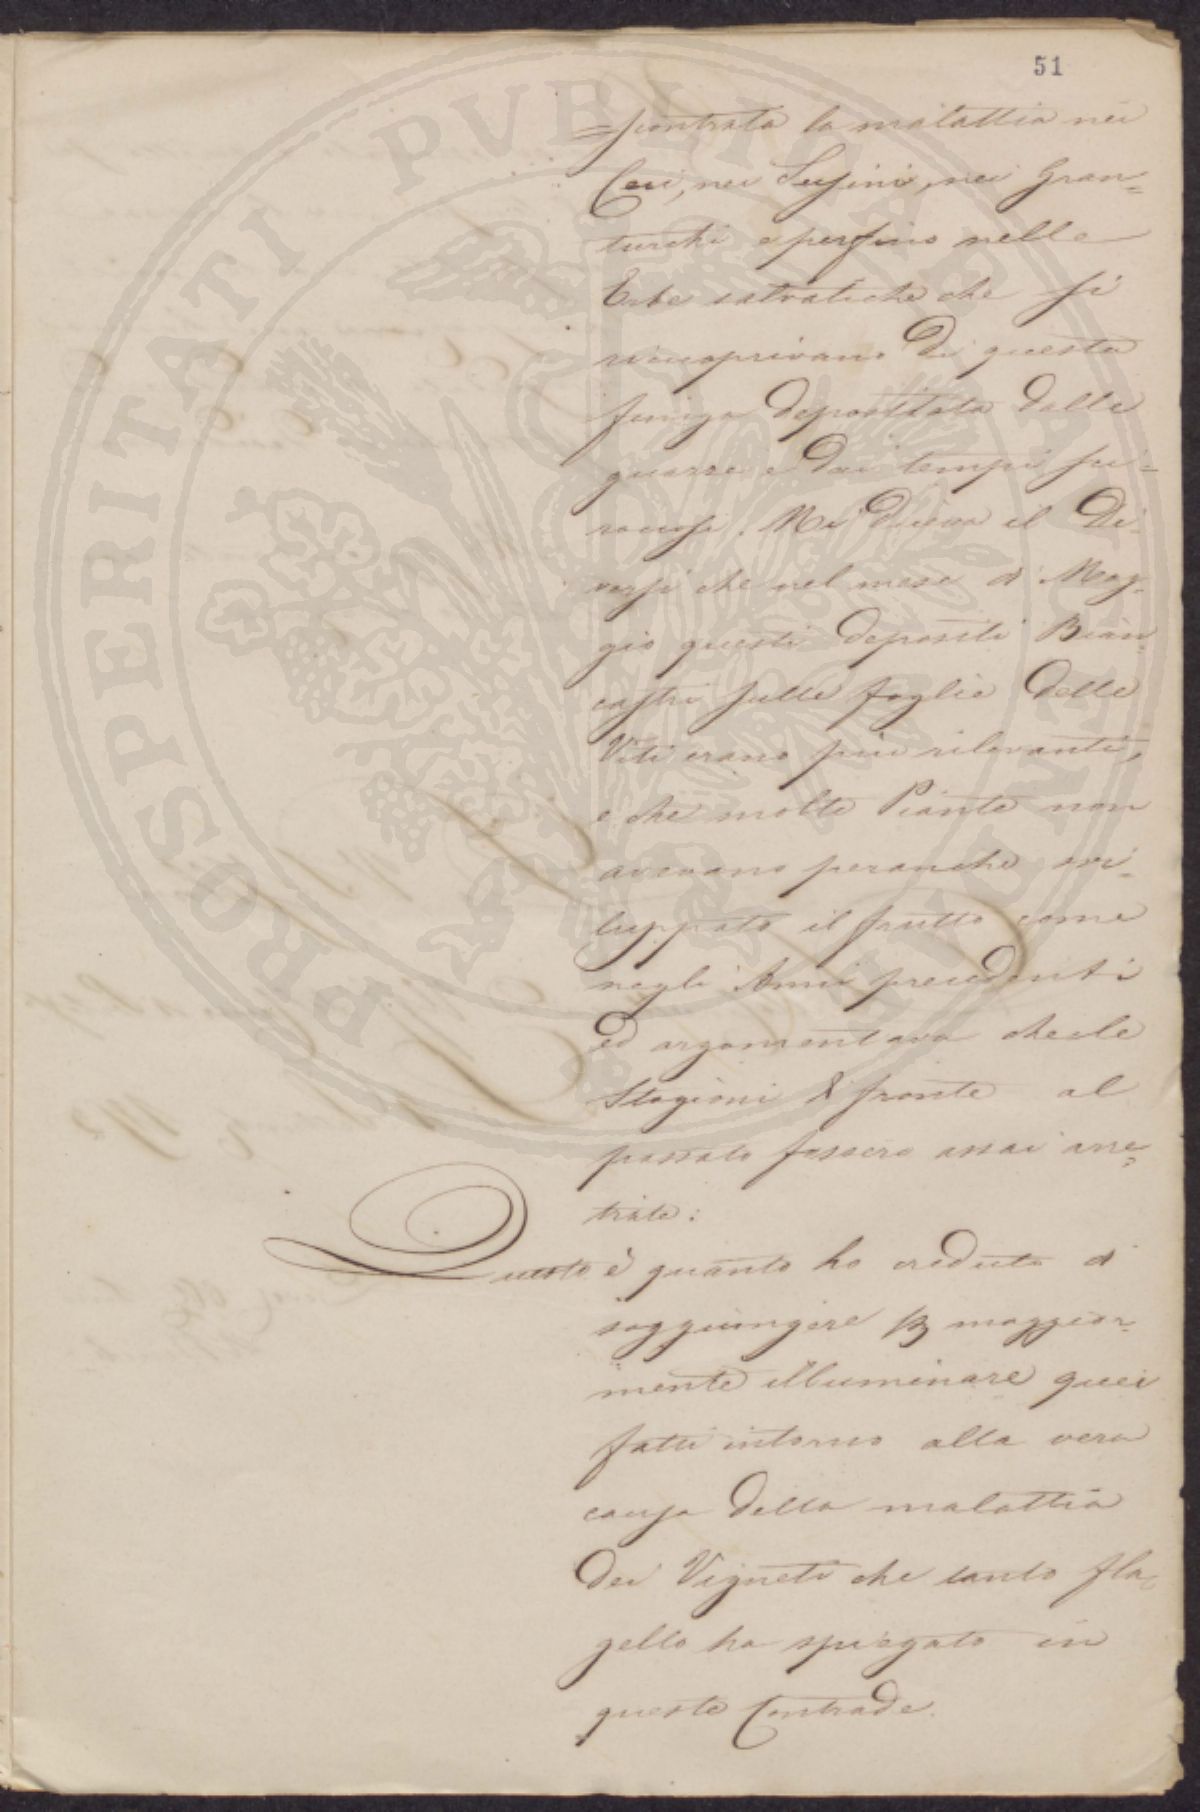 51
=scontrata la malattia nei
Ceci, nei Susini, nei Gran=
turchi e perfino nelle
Erbe salvatiche che si
ricuoprivano di questa
fuliga depositata dalle
guazze e dai tempi sci=
roccosi. Mi diceva il Di=
che nel mese di Mag=
gio questi depositi Bian
castri sulle foglie delle
Viti erano più rilevanti,
e che molte Piante non
avevano peranche svi=
luppato il frutto come
negli Anni precedenti
ed argomentava che le
Stagioni di fronte al
passato fossero assai arre=
trate:
Questo è quanto ho creduto di
soggiungere per maggior=
mente illuminare quei
fatti intorno alla vera
causa della malattia
dei Vigneti che tanto fla=
gello ha spiegato in
queste Contrade.
PROSPERITATI PVBLICAE AVGENDAE